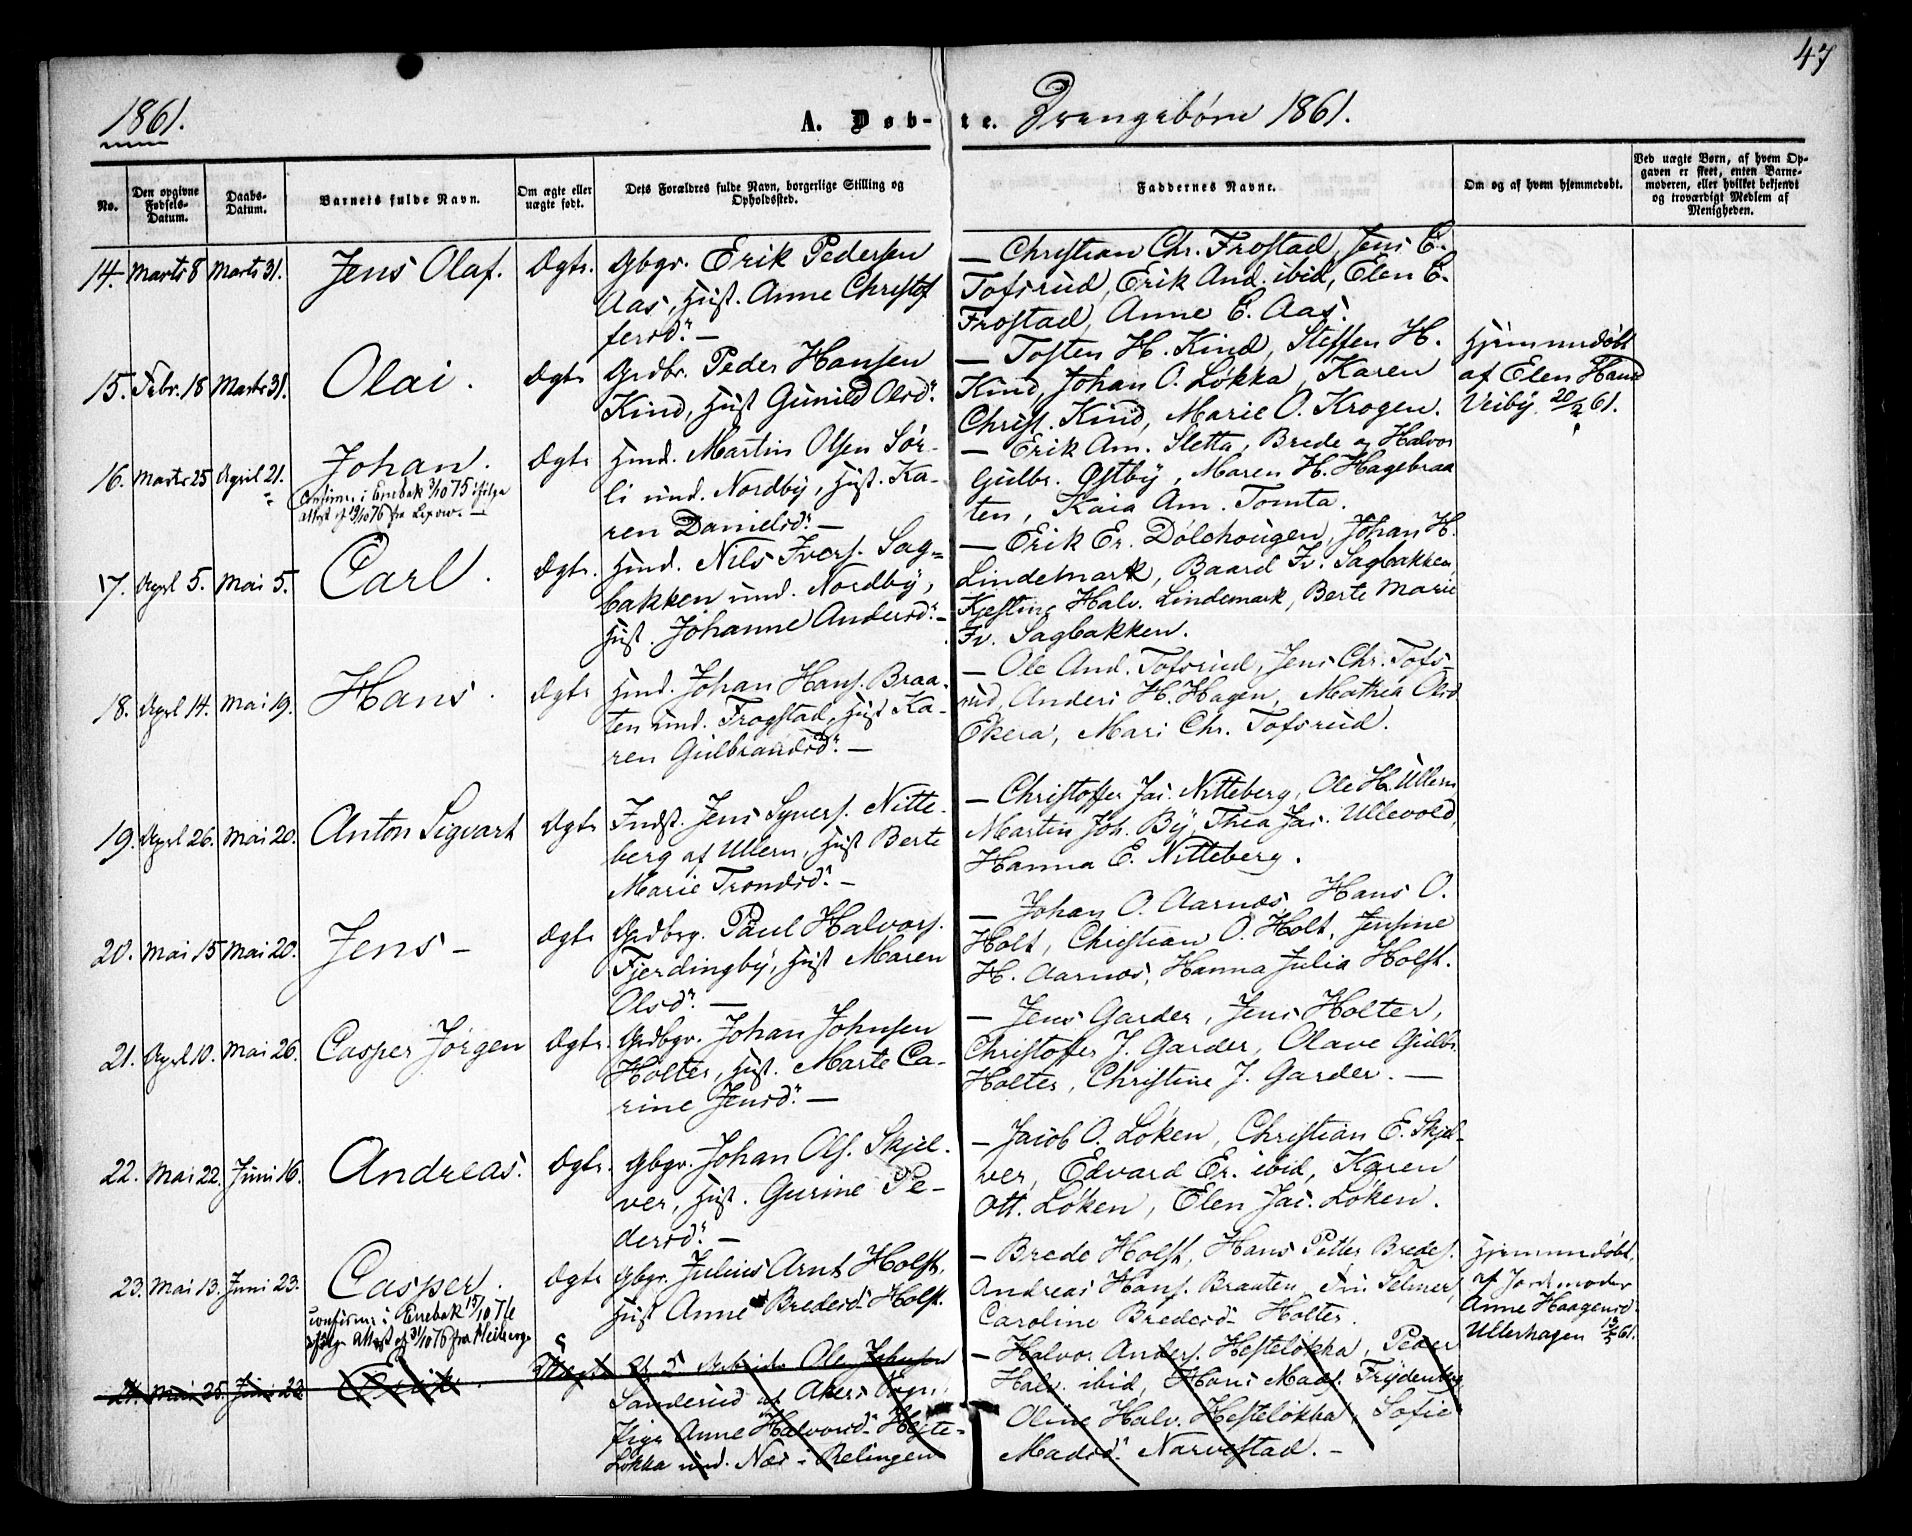 47
1861.
A. Døb-te. Drengebørn 1861.
No.
Den opgivne Fødsels-Datum.
Daabs-Datum.
Barnets fulde Navn.
Om ægte eller uægte født.
Dets Forældres fulde Navn, borgerlige Stilling og Opholdssted.
Faddernes Navne.
Om og af hvem hjemmedøbt.
Ved uægte Børn, af hvem Opgaven er skeet, enten Barnemoderen, eller hvilket bekjendt og troværdigt Medlem af Menigheden.
14. Marts 8 Marts 31. Jens Olaf. Ægte. Gbgr. Erik Pedersen
Aas, Hust. Anne Christof
fersd. —
— Christian Chr. Frostad, Jens E.
Tofsrud, Erik And. ibid, Elen E.
Frostad, Anne E. Aas.
15. Febr. 18 Marts 31. Olai. Ægte Grdbr. Peder Hansen
Kind, Hust Gunild Olsd.
— Tosten H. Kind, Steffen H.
Kind, Johan O. Løkka, Karen
Christ. Kind, Marie O. Krogen.
Hjemmedøbt
af Elen Hansd
Veiby 20/2 61.
16. Marts 25 April 21. Johan. Ægte Husd. Martin Olsen Sør-
li und. Nordby, Hust. Ka-
ren Danielsd. —
Confirm. i Enebak 3/10 75 ifølge
Attest af 19/10 76 fra
— Erik Am. Sletta, Brede og Halvor
Gulbr. Østby, Maren H. Hagebraa
ten, Kaia Am. Tomta.
17. April 5. Mai 5. Carl. Ægte. Husd. Nils Ivers. Sag-
bakken und. Nordby,
Hust. Johanne Andersd. —
— Erik Er. Dølehougen, Johan H.
Lindemark, Baard Iv. Sagbakken,
Kjestine Halv. Lindemark, Berte Marie
Iv. Sagbakken.
18. April 14. Mai 19. Hans. Ægte Husd. Johan Hans. Braa-
ten und. Frogstad, Hust Ka-
ren Gulbrandsd. —
— Ole And. Tofsrud, Jens Chr. Tofs-
rud, Anders H. Hagen, Mathea Olsd
Økera, Mari Chr. Tofsrud.
19. April 26. Mai 20. Anton Sigvart Ægte Indst. Jens Syvers. Nitte-
berg af Ullern, Hust Berte
Marie Trondsd. —
— Christoffer Jac. Nitteberg, Ole H. Ullern
Martin Joh. By, Thea Jac. Ullevold,
Hanna E. Nitteberg.
20. Mai 15 Mai 20. Jens — Ægte Grdbrg. Paul Halvors.
Fjerdingby, Hust Maren
Olsd. —
— Johan O. Aarnæs, Hans O.
Holt, Christian O. Holt, Jensine
H. Aarnæs, Hanna Julia Holst.
21. April 10. Mai 26. Casper Jørgen Ægte. Grdbgr. Johan Johnsen
Holter, Hust. Marte Ca-
rine Jensd. —
— Jens Garder, Jens Holter,
Christoffer J. Garder, Olave Gulbr.
Holter, Christine J. Garder. —
22. Mai 22. Juni 16. Andreas. Ægte. Gbgr. Johan Ols. Skjel-
ver, Hust. Gurine Pe-
dersd. —
— Jacob O. Løken, Christian E. Skjel-
ver, Edvard Er. ibid, Karen
Ott. Løken, Elen Jac. Løken.
23. Mai 13. Juni 23. Casper. Ægte Gbgr. Julius Arnt Holst,
Hust Anne Bredesd. Holst.
Confirm. i Enebak 15/10 76
ifølge Attest af 31/10 76 fra
— Brede Holst, Hans Petter Bredes.
Andreas Hans. Braaten, Selmer,
Caroline Bredesd. Holter.
Hjemmedøbt
af Jordmoder
Anne Haagensd.
Ullerhagen 13/5 61.
24. Mai 25. Juni 23. Erik. Uægte Ole Johnsen
Sanderud af Akers Sogn,
Pige Anne Halvorsd. Heste-
løkka und. Næs i Relingen
— Halvor Anders. Hesteløkka, Peder
Halv. ibid, Hans Mads. Frydenberg
Oline Halv. Hesteløkka, Sofie
Madsd. Narvestad. —